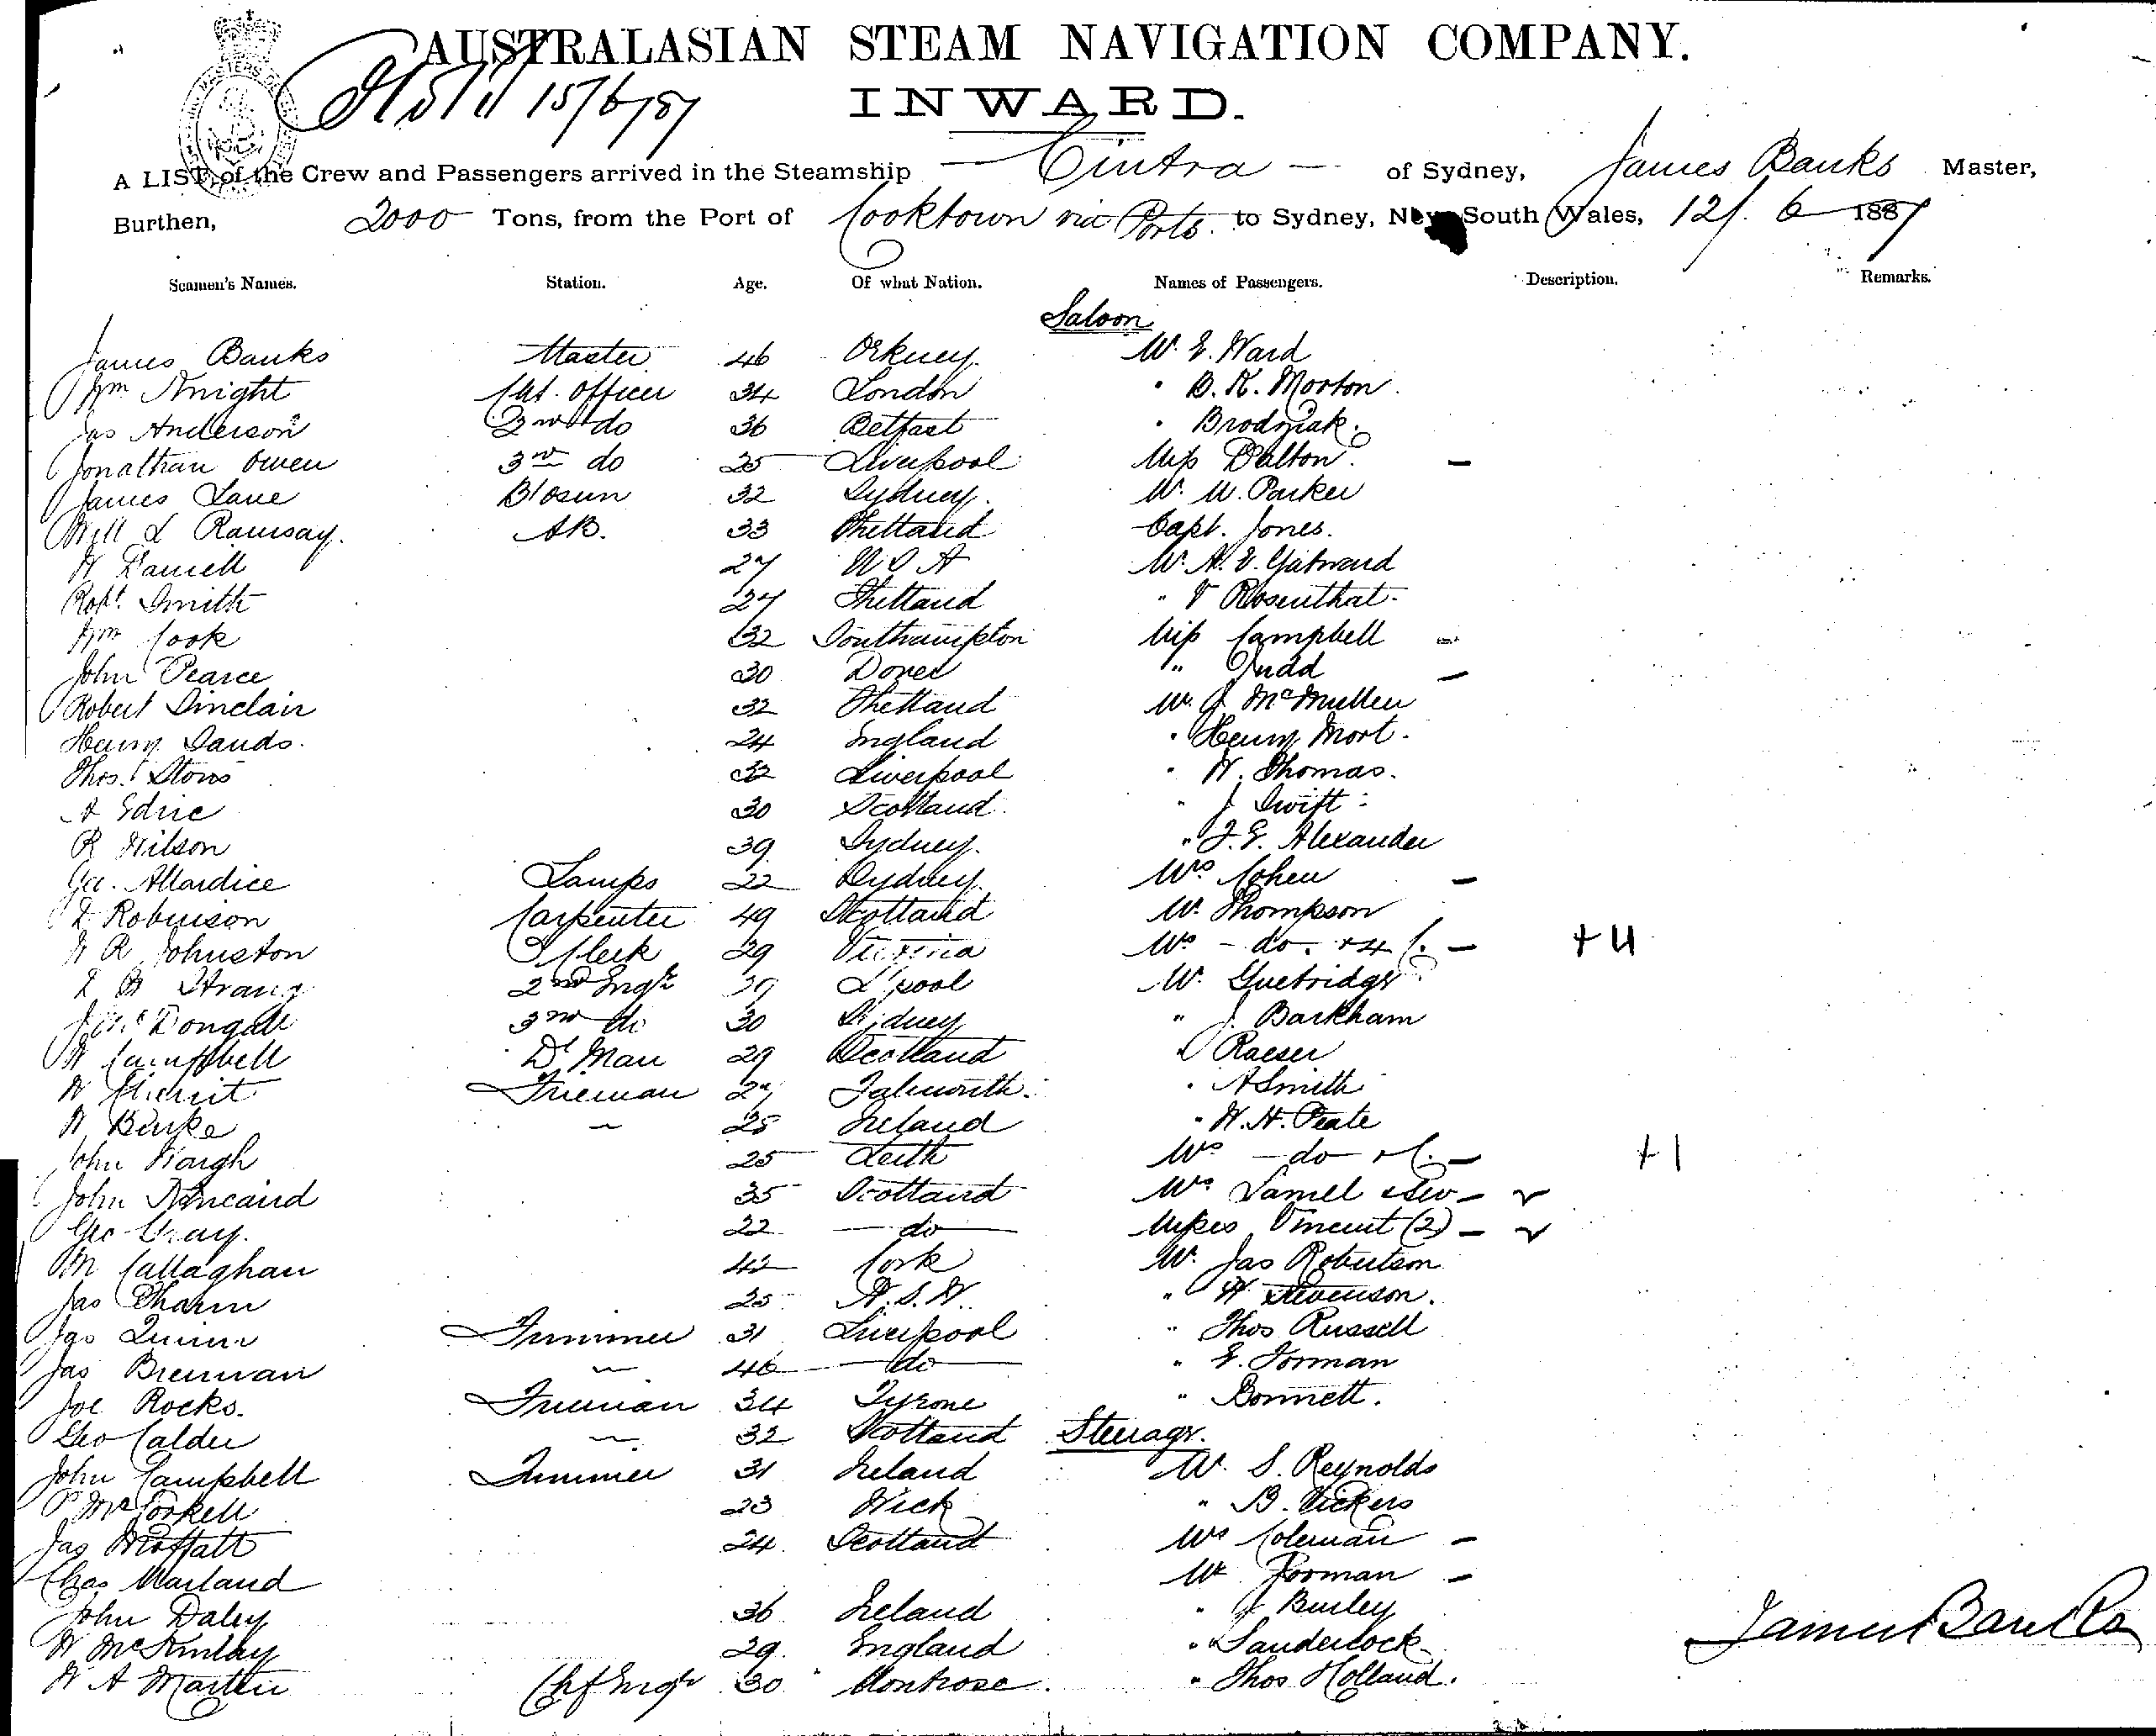 AUSTRALASIAN STEAM NAVIGATION COMPANY.
15/6/87
INWARD.
A LIST of the Crew and Passengers arrived in the Steamship Cintra of Sydney, James Banks Master,
Burthen, 2000 Tons, from the Port of Cooktown via Ports to Sydney, New South Wales, 12/. 6 1887
Seamen's Names. Station. Age. Of what Nation. Names of Passengers. Description. Remarks.
Saloon
James Banks Master 46 Orkney. Mr. E. Ward
Wm Knight 1st. Officer 34 London " B. K. Morton
Jas Anderson 2nd do 36 Belfast " Brodziak.
Jonathan Owen 3rd do 25 Liverpool Miss Dalton. –
James Lane B'osun 32 Sydney. Mr. W. Parker
Will L Ramsay. AB. 33 Shetland Capt. Jones.
W Daniell 27 U S A Mr. A. E. Gatward
Robt. Smith 27 Shetland " Rosenthal.
Wm Cook 32 Southampton Miss Campbell –
John Pearce 30 Dover " Judd –
Robert Sinclair 32 Shetland Mr. J. McMullen
Henry Sands. 24 England " Henry Mort.
Thos. 32 Liverpool " W. Thomas.
A Edrie 30 Scotland " J Swift
R Wilson 39 Sydney. " F. E. Alexander
Geo. Allardice Lamps 22 Sydney. Mrs Cohen –
Robinson Carpenter 49 Scotland Mr. Thompson
W R Johnston Clerk 29 Victoria Mrs – do. +4 C. – +4
Strang 2nd Engr 39 L'pool Mr. Guetridge
McDongall 3rd do 30 Sydney " J. Barkham
W Campbell D' Man 29 Scotland " Raeser
W Fireman 27 Falmouth. " A Smith
W Burke – 25 Ireland " W. H. Peate
John Waugh 25 Leith Mrs – do + C. – +1
John Kincaird 35 Scotland Mrs Samel & Sev –
Geo Gray. 22 do Misses Vincent (2) –
M Callaghan 42 Cork Mr. Jas Robertson
Jas Pharm 25 N. S. W. " W Stevenson.
Jas Quinn Trimmer 31 Liverpool " Thos Russell
Jas Brennan – 46 do " E. Forman
Joe Rocks. Fireman 34 Tyrone " Bonnett.
Geo Calder – 32 Scotland Steerage.
John Campbell Trimmer 31 Ireland Mr. S. Reynolds
P McCorkell 23 Wick " B. Vickers
Jas Moffatt 24 Scotland Mrs Coleman –
Chas Marland Mr Forman –
John Daley 36 Ireland " J Burley
W McKinlay 29. England " Sandercock
W A Martin Chf Engr 30 Montrose. " Thos Holland.
James Banks